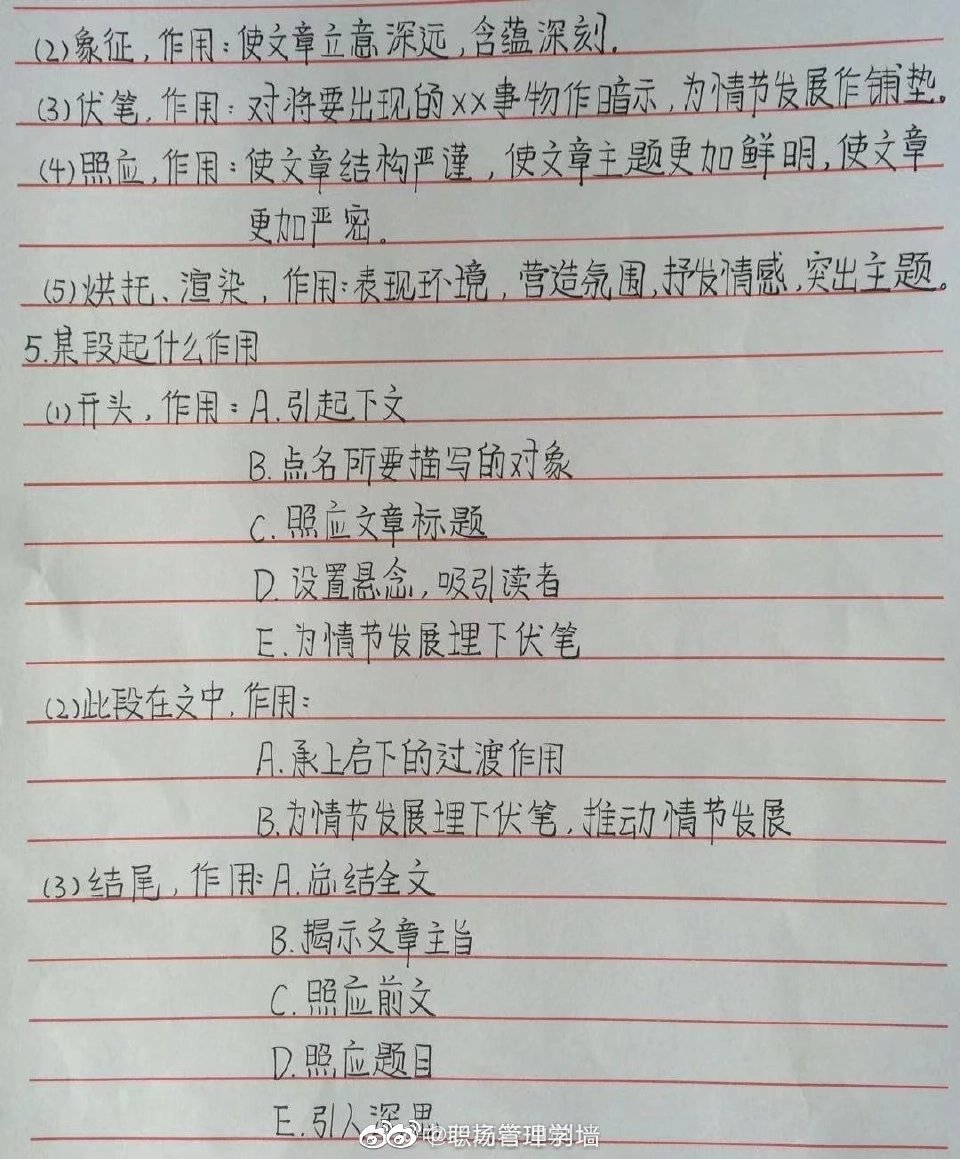 (2)象征,作用:使文章立意深远,含蕴深刻.
(3)伏笔,作用:对将要出现的××事物作暗示,为情节发展作铺垫。
(4)照应,作用:使文章结构严谨,使文章主题更加鲜明,使文章
更加严密。
(5)烘托、渲染,作用:表现环境,营造氛围,抒发情感,突出主题。
5.某段起什么作用
(1)开头,作用:A.引起下文
B.点名所要描写的对象
C.照应文章标题
D.设置悬念,吸引读者
E.为情节发展埋下伏笔
(2)此段在文中,作用:
A.承上启下的过渡作用
B.为情节发展埋下伏笔,推动情节发展
(3)结尾,作用:A.总结全文
B.揭示文章主旨
C.照应前文
D.照应题目
E.引人深思
@职场管理学墙